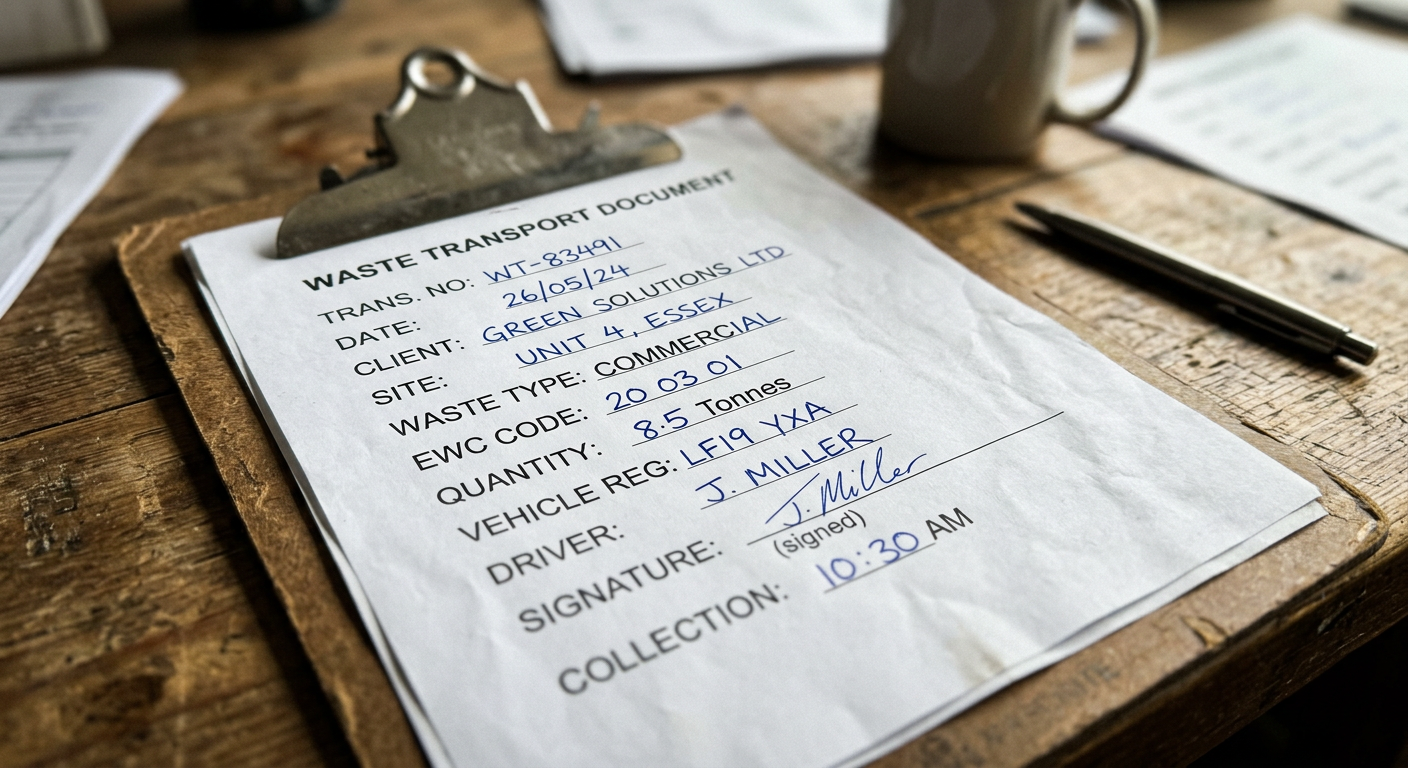 WASTE TRANSPORT DOCUMENT
TRANS. NO: WT-83491
DATE: 26/05/24
CLIENT: GREEN SOLUTIONS LTD
SITE: UNIT 4, ESSEX
WASTE TYPE: COMMERCIAL
EWC CODE: 20 03 01
QUANTITY: 8.5 Tonnes
VEHICLE REG: LF19 YXA
DRIVER: J. MILLER
SIGNATURE: J. Miller
(signed)
COLLECTION: 10:30 AM